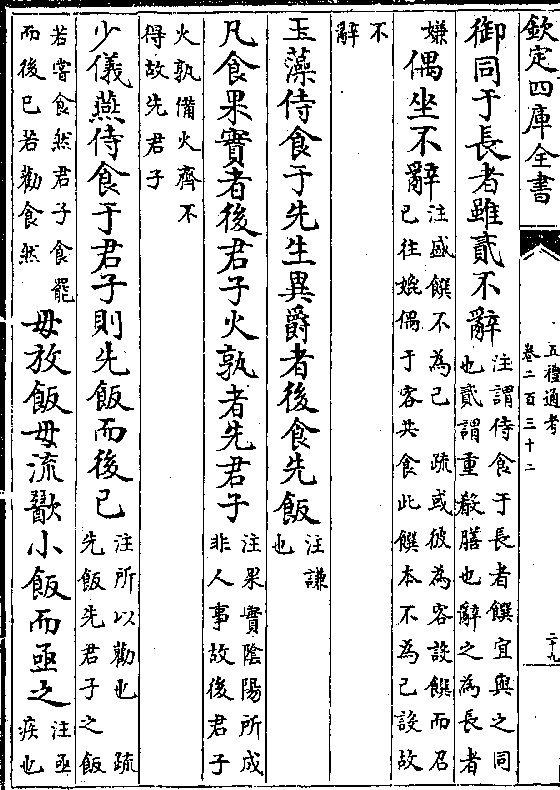 欽定四庫全書
五禮通考
卷二百三十二
二十九
御同于長者雖貳不辭注謂侍食于長者饌宜與之同也貳謂重殽膳也辭之為長者
嫌 偶坐不辭注盛饌不為己 疏或彼為客設饌而召己往媲偶于客共食此饌本不為己設故
不辭
玉藻侍食于先生異爵者後食先飯注謙也
凡食果實者後君子火孰者先君子注果實陰陽所成非人事故後君子
火孰備火齊不得故先君子
少儀燕侍食于君子則先飯而後已注所以勸也 疏先飯先君子之飯
若嘗食然君子食罷而後已若勸食然 毋放飯毋流歠小飯而亟之注亟疾也